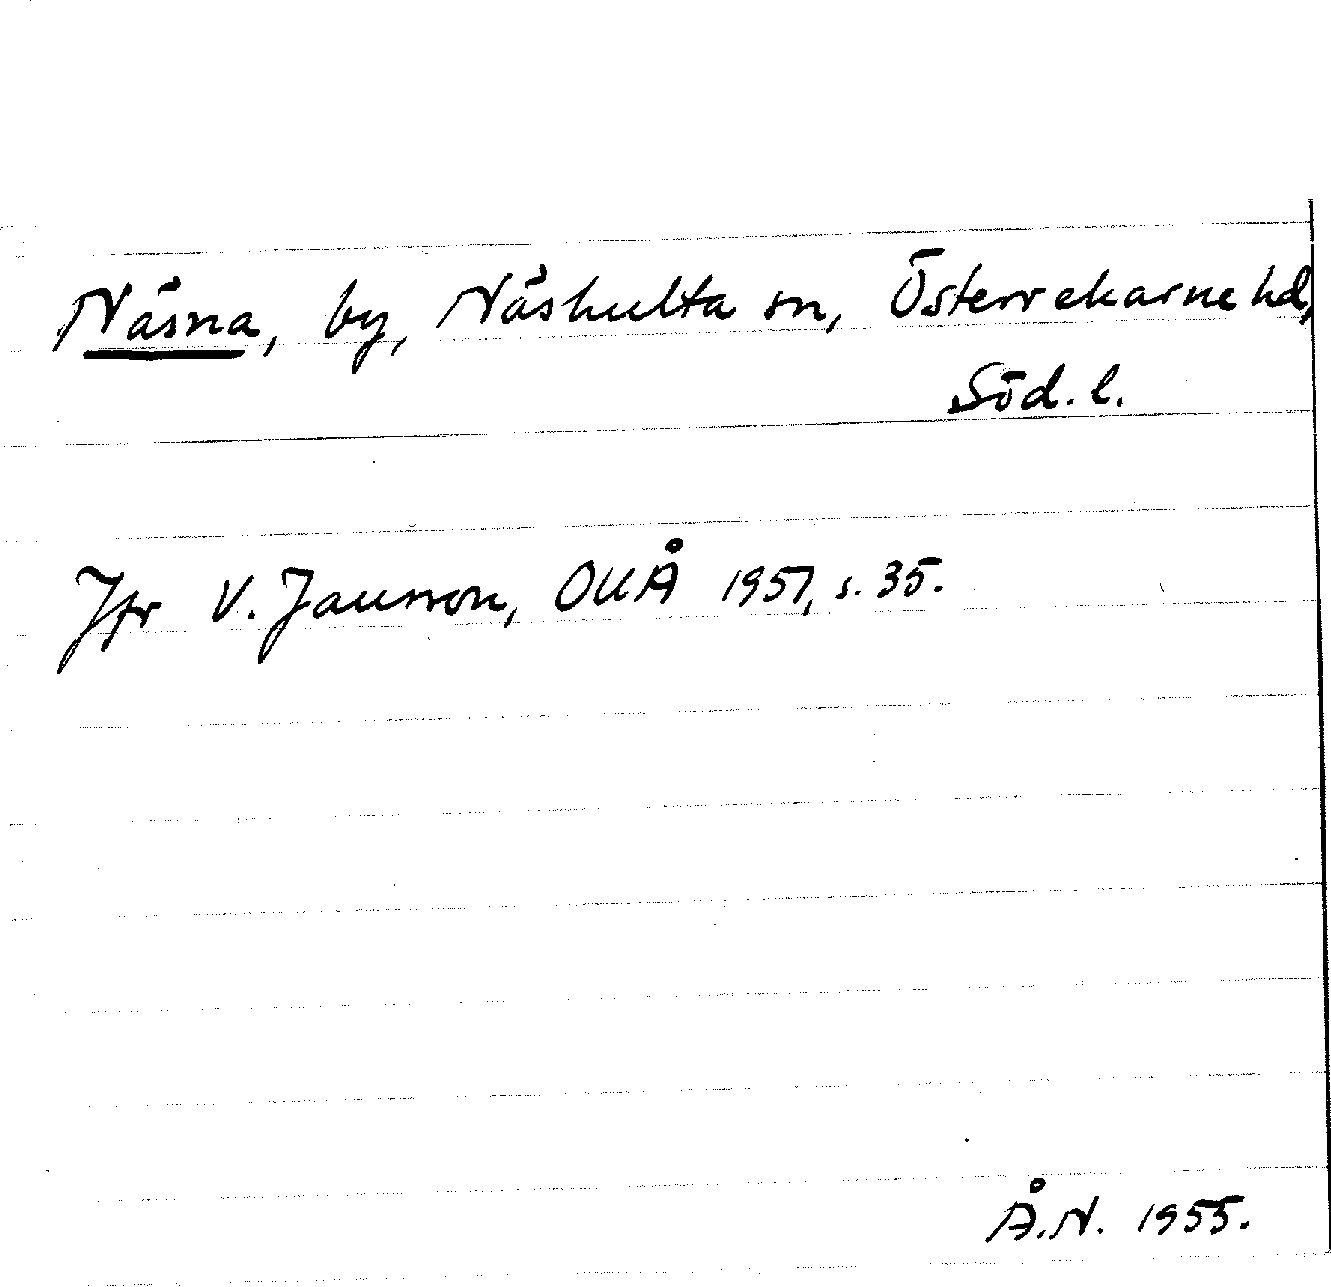 Näsna, by, Näshulta sn, Österrekarne hd,
Söd. l.
Jfr V. Jansson, OUÅ 1951, s. 35.
Å.N. 1955.